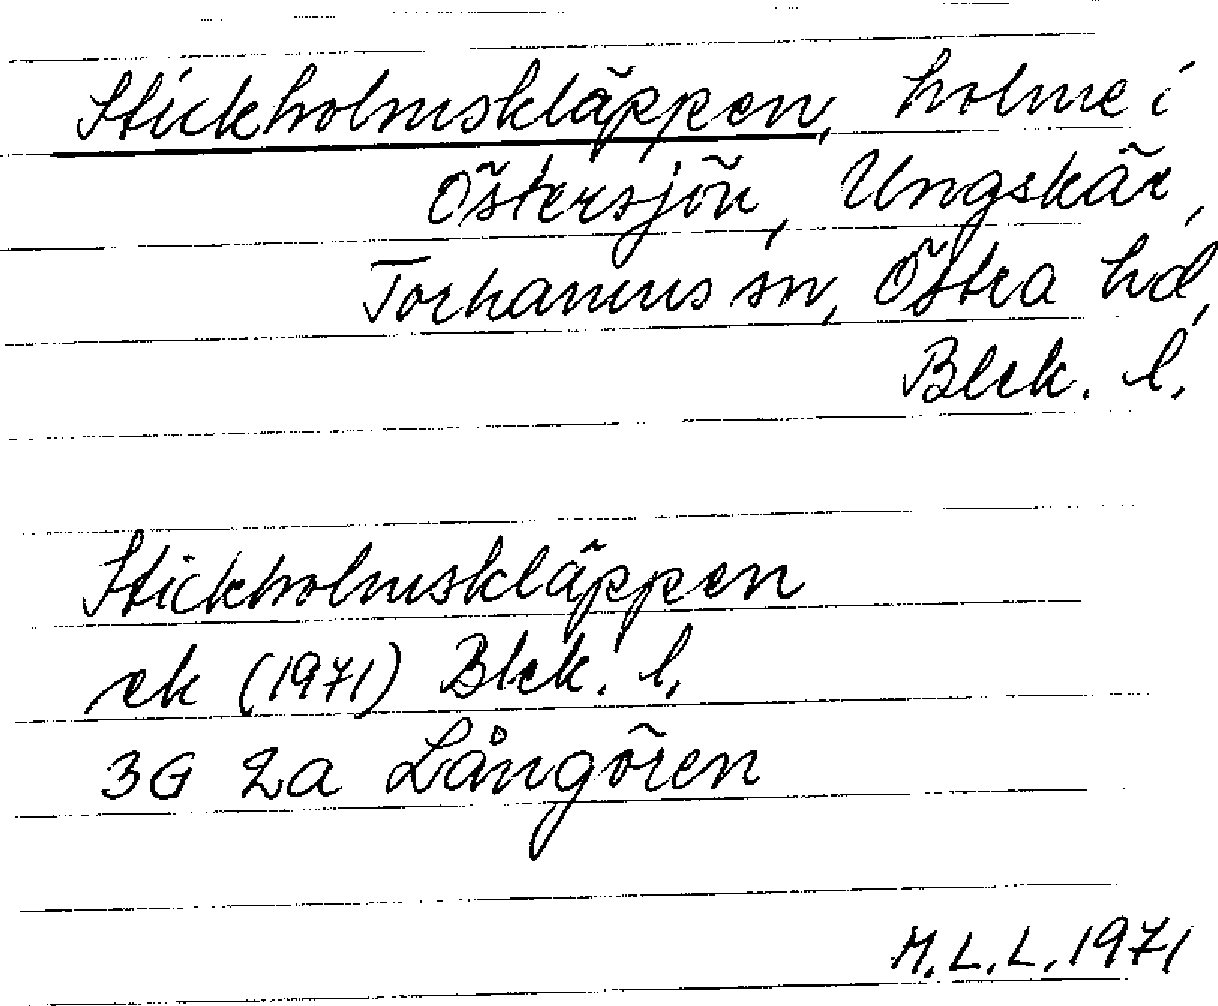 Stickholmskläppen, holme i
Östersjön, Ungskär,
Torhamns sn, Östra hd,
Blek. l.
Stickholmskläppen
ek (1971) Blek. l.
3G 2a Långören
M.L.L. 1971